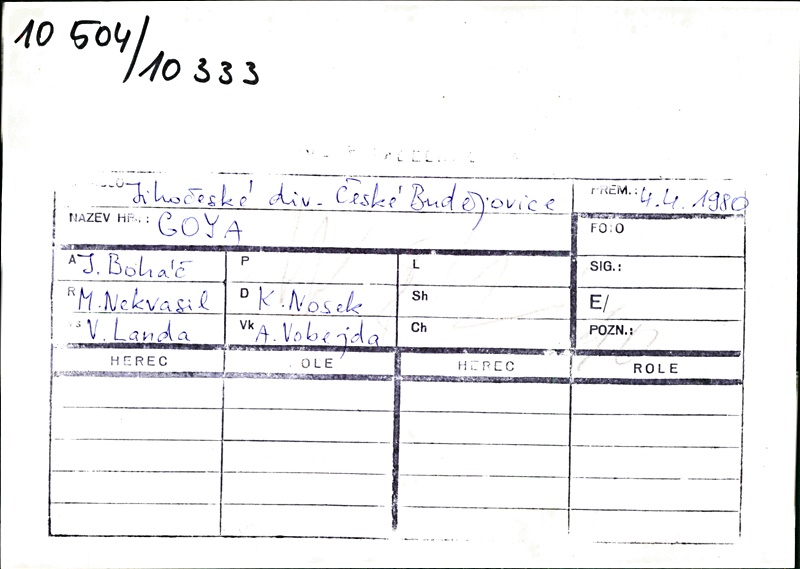 10 504/10 333
Jihočeské div. České Budějovice PREM.: 4.4. 1980
NAZEV HR.: GOYA FOTO
A J. Boháč P L SIG.:
R M. Nekvasil D K. Nosek Sh E/
V. Landa Vk A. Vobejda Ch POZN.:
HEREC OLE HEREC ROLE